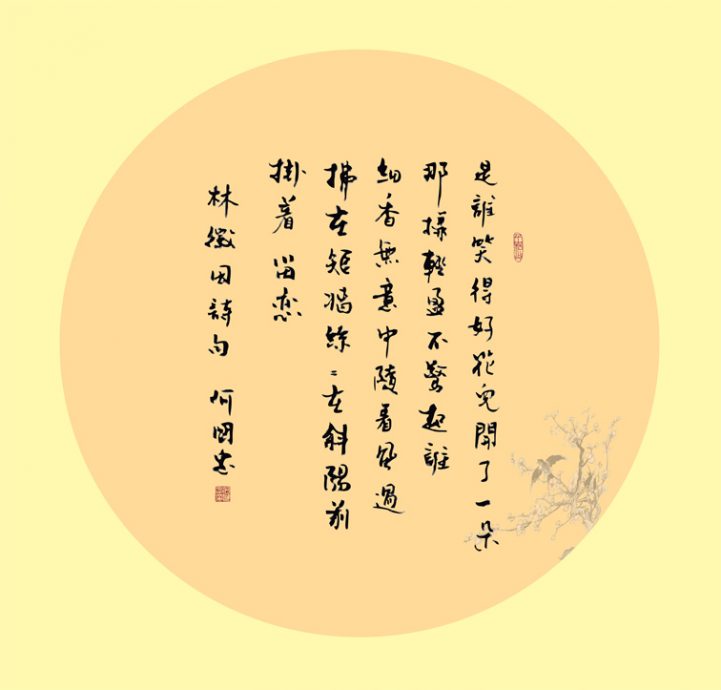 是誰笑得好花兒開了一朵
那樣輕盈不驚起誰
細香無意中隨着風過
拂在短牆絲〻在斜陽前
掛着 留恋
林徽因詩句 何國忠